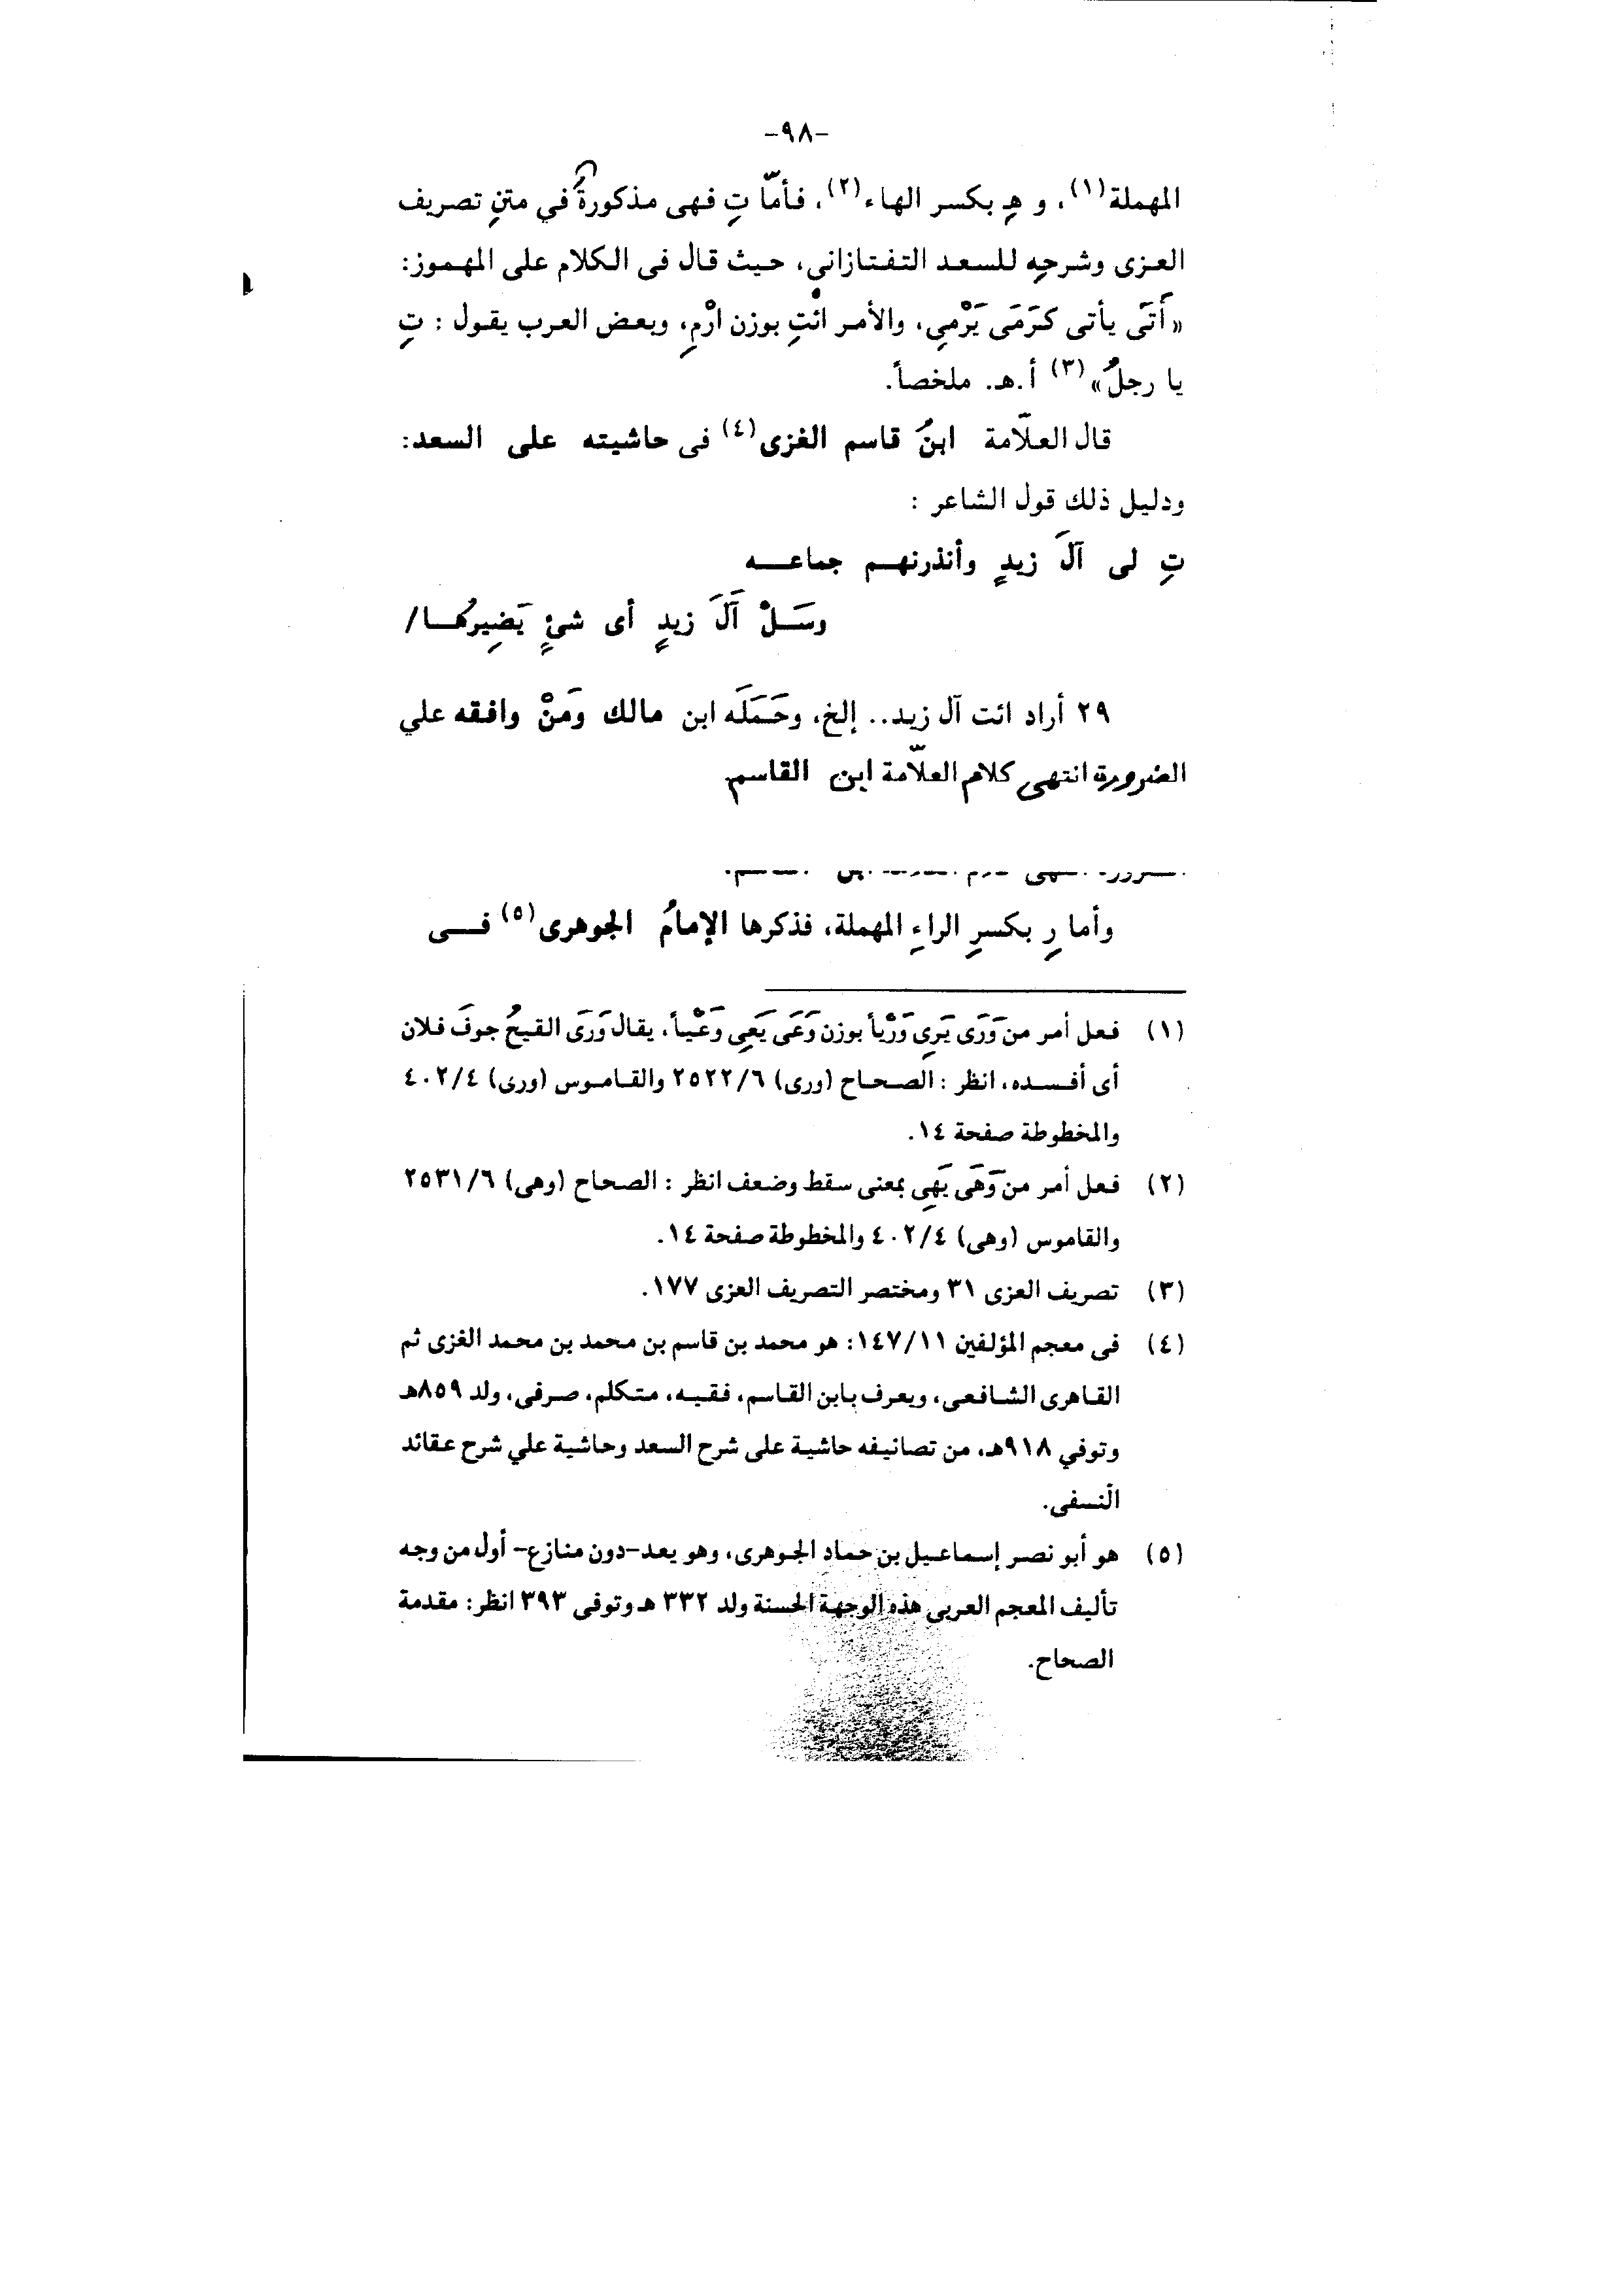 -٩٨-
المهملة(١)، و هِ بكسر الهاء(٢)، فأمّا تِ فهى مذكورةُ في متنِ تصريف
العزى وشرحِه للسعد التفتازاني، حيث قال فى الكلام على المهموز:
«أَتَى يأتى كرَمَى يَرْمىِ، والأمر ائْتِ بوزن ارْمِ، وبعض العرب يقول : تِ
يا رجلُ»(٣) أ.هـ. ملخصاً.
قال العلّامة ابنُ قاسم الغزى(٤) فى حاشيته على السعد:
ودليل ذلك قول الشاعر :
تِ لى آلَ زيدٍ وأنذرنهم جماعـــه
وسَــلْ آلَ زيدٍ أى شئٍ يَضِيرُهــا/
٢٩ أراد ائت آل زيد.. إلخ، وحَمَلَه ابن مالك ومَنْ وافقه علي
الضرورة انتهى كلام العلاّمة ابن القاسم.
وأما رِ بكسرِ الراءِ المهملة، فذكرها الإمامُ الجوهرى(٥) فـــى
(١) فعل أمر من وَرَى يَرِي وَرْياً بوزن وَعَى يَعِي وَعْياً، يقال وَرَى القيحُ جوفَ فلان
أى أفسده، انظر : الصحاح (ورى) ٢٥٢٢/٦ والقاموس (ورى) ٤٠٢/٤
والمخطوطة صفحة ١٤.
(٢) فعل أمر من وَهَى يَهِي بمعنى سقط وضعف انظر : الصحاح (وهى) ٢٥٣١/٦
والقاموس (وهى) ٤٠٢/٤ والمخطوطة صفحة ١٤.
(٣) تصريف العزى ٣١ ومختصر التصريف العزى ١٧٧.
(٤) فى معجم المؤلفين ١٤٧/١١: هو محمد بن قاسم بن محمد بن محمد الغزى ثم
القاهرى الشافعى، ويعرف بابن القاسم، فقيه، متكلم، صرفى، ولد ٨٥٩هـ
وتوفي ٩١٨هـ، من تصانيفه حاشية على شرح السعد وحاشية علي شرح عقائد
النسفى.
(٥) هو أبو نصر إسماعيل بن حماد الجوهرى، وهو يعد-دون منازع- أول من وجه
تأليف المعجم العربي هذه الوجهة الحسنة ولد ٣٣٢ هـ وتوفى ٣٩٣ انظر: مقدمة
الصحاح.